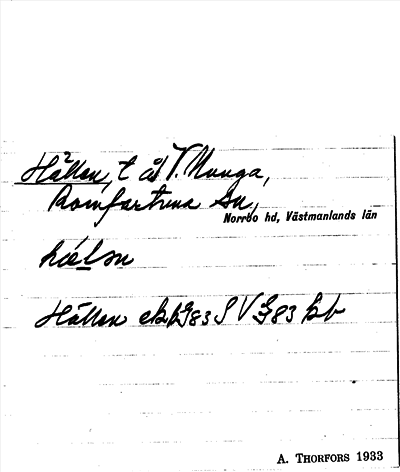 Hällen, t åt V. Munga,
Romfartuna sn,
Norrbo hd, Västmanlands län
hä́len
Hällen ekbl G83 S V G83 hbr
A. THORFORS 1933